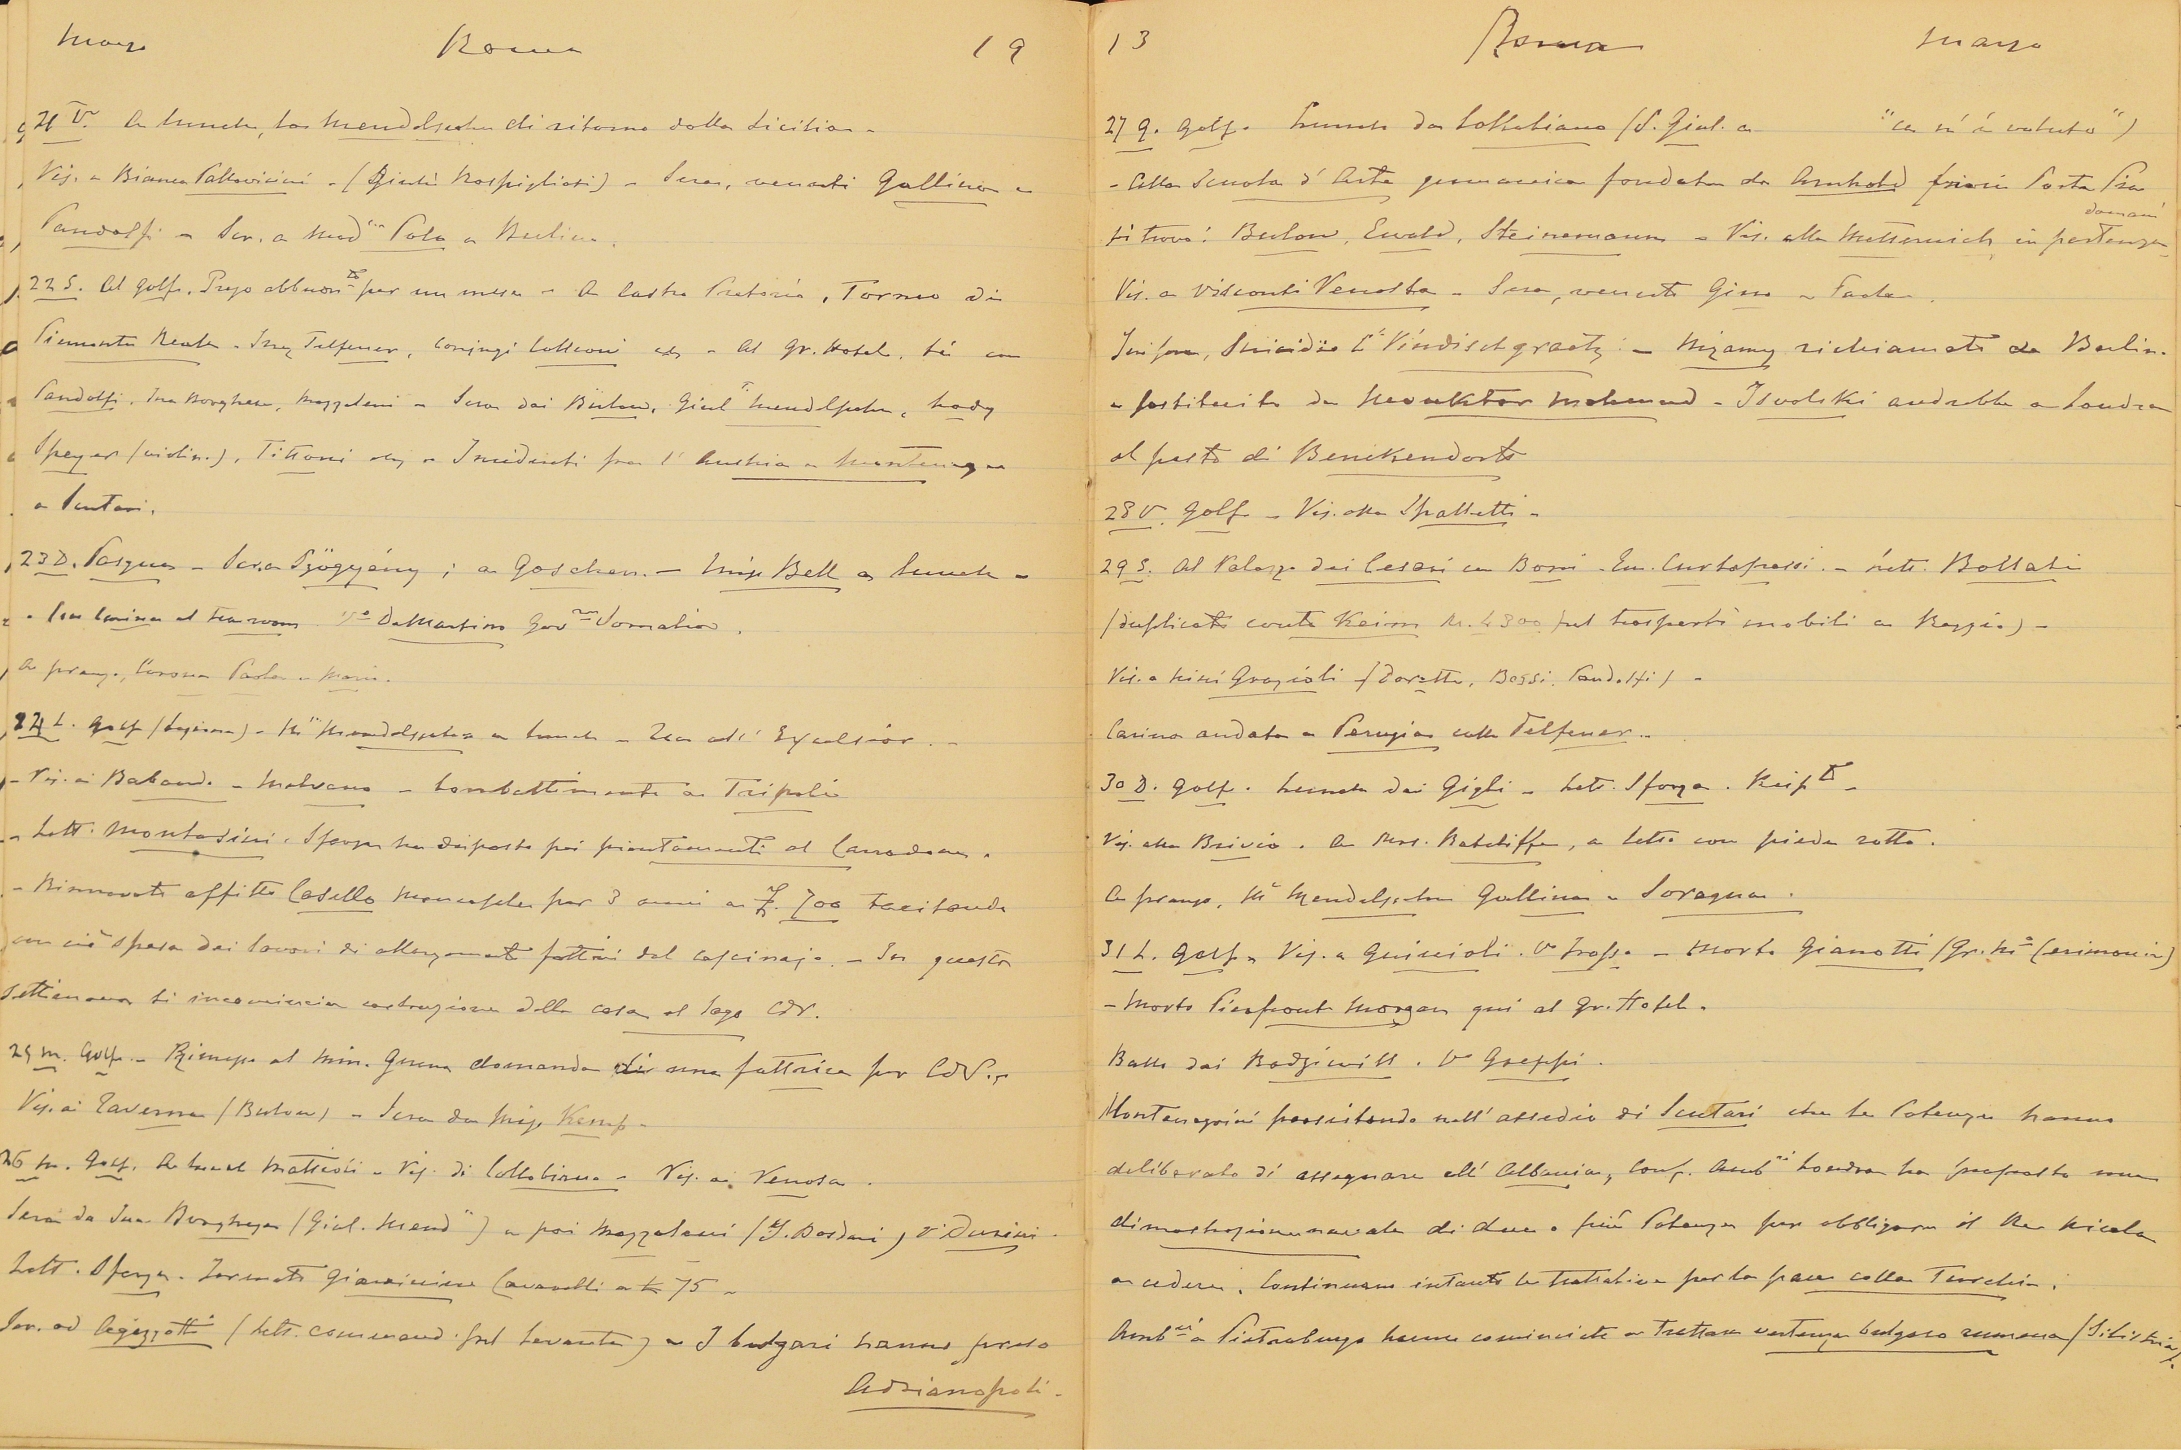 Marzo Roma 19
21 V. A lunch, la Mendelssohn di ritorno dalla Sicilia -
Vis. a Bianca Pallavicini - (Giulia Rospigliosi) - Sera, venuti Gallina e
Pandolfi - Scr. a Mad Pala a Berlino.
22 S. Al golf. Pago abbuon per un mese - A Castro Pretorio, Torneo di
Piemonte Reale - Inez Telfener, coniugi - Al Gr. Hotel, tè con
Pandolfi, Ina Borghese, Mazzoleni - Sera dai Bülow, Giul Mendelssohn, Lady
Speyer (violin.), Tittoni - Incidenti fra l'Austria e Montenegro
a Scutari.
23 D. Pasqua - Scr. a Szögyény; a Goschen. - Miss Bell a lunch -
- Con Carina al tea room V° De Martino Gov Somalia.
A pranzo, Corona Paola e Mario.
24 L. Golf (Carina) - M Mendelssohn a lunch - Tea all'Excelsior. -
- Vis. ai - Malvano - Combattimento a Tripoli
- Lett. Montasini. Sforza ha disposto poi piantamenti al
- Rinnovato affitto Casello per 3 anni a £. 700 tacitando
con ciò spesa dei lavori di allargamento fattivi dal cascinajo. - In questa
settimana si incomincia costruzione della casa al lago CdV.
25 M. Golf - Rimesso al Min. Guerra domanda di una fattrice per CdV. -
Vis. ai Taverna (Bülow) - Sera da Miss Kemp -
26 M. Golf. A Mattioli - Vis. di Collobiano - Vis. ai Venosa.
Sera da Ina Borghese (Giul. Mend) e poi Mazzoleni ( ) V° Durini.
Lett. Sforza - Giovinina Cavanelli a £ 75 -
Scr. ad Agazzotti (lett. command. pel Levante) - I bulgari hanno preso
Adrianopoli -
13 Roma marzo
27 G. Golf. Lunch da Collobiano (S. Giul. a " ")
- Alla Scuola d'Arte germanica fondata da Arnhold fuori Porta Pia
domani
si trova: Bülow, Ewald, Steinmann - Vis. alla Metternich in partenza -
Vis. a Visconti Venosta - Sera, venuti Gino e Paola.
Suicidio Windischgraetz - Nizamy richiamato da Berlin.
e sostituito da Moukhtar Mahmud - Isvolski andrebbe a Londra
al posto di Benckendorf
28 V. Golf - Vis. alla Spalletti -
29 S. Al Palazzo dei Cesari con Boni - Em. Curtopassi. - Lett. Bollati
(duplicato conto Keim M. 4300 pel trasporto mobili a Reggio) -
Vis. a Ninì Grazioli (Doretta, Bossi, Pandolfi) -
Carina andata a Perugia colla Telfener. -
30 D. Golf. Lunch dai Gigli - Lett. Sforza. -
Vis. alla Brivio. A Mrs. Ratcliffe, a letto con piede rotto.
A pranzo, M Mendelssohn Gallina e Soragna.
31 L. Golf - Vis. a Guiccioli. V° - Morto Gianotti (Gr. M° Cerimonie)
- Morto Pierpont Morgan qui al Gr. Hotel.
Ballo dai Radziwill. V° Greppi.
Montenegrini persistendo nell'assedio di Scutari che le Potenze hanno
deliberato di assegnare all'Albania, Conf. Amb Londra ha proposto una
dimostrazione navale di due o più Potenze per obbligare il Re Nicola
a cedere. Continuano intanto le trattative per la pace colla Turchia.
Amb a Pietroburgo hanno cominciato a trattare vertenza bulgaro rumena (Silistria).